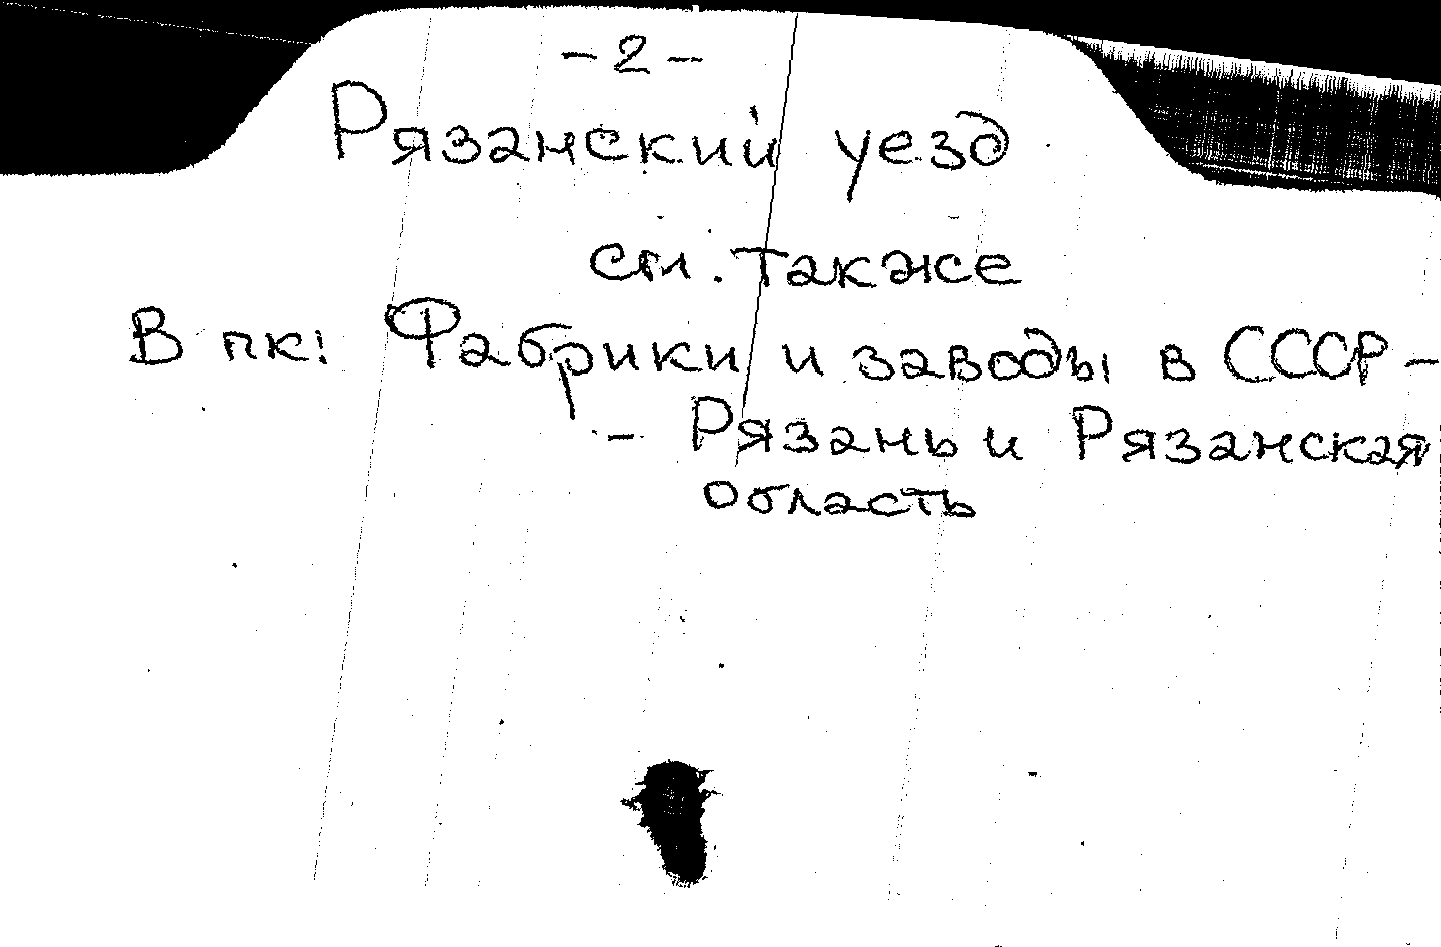 - 2 -
Рязанский уезд
см. также
В пк: Фабрики и заводы в СССР -
- Рязань и Рязанская
область